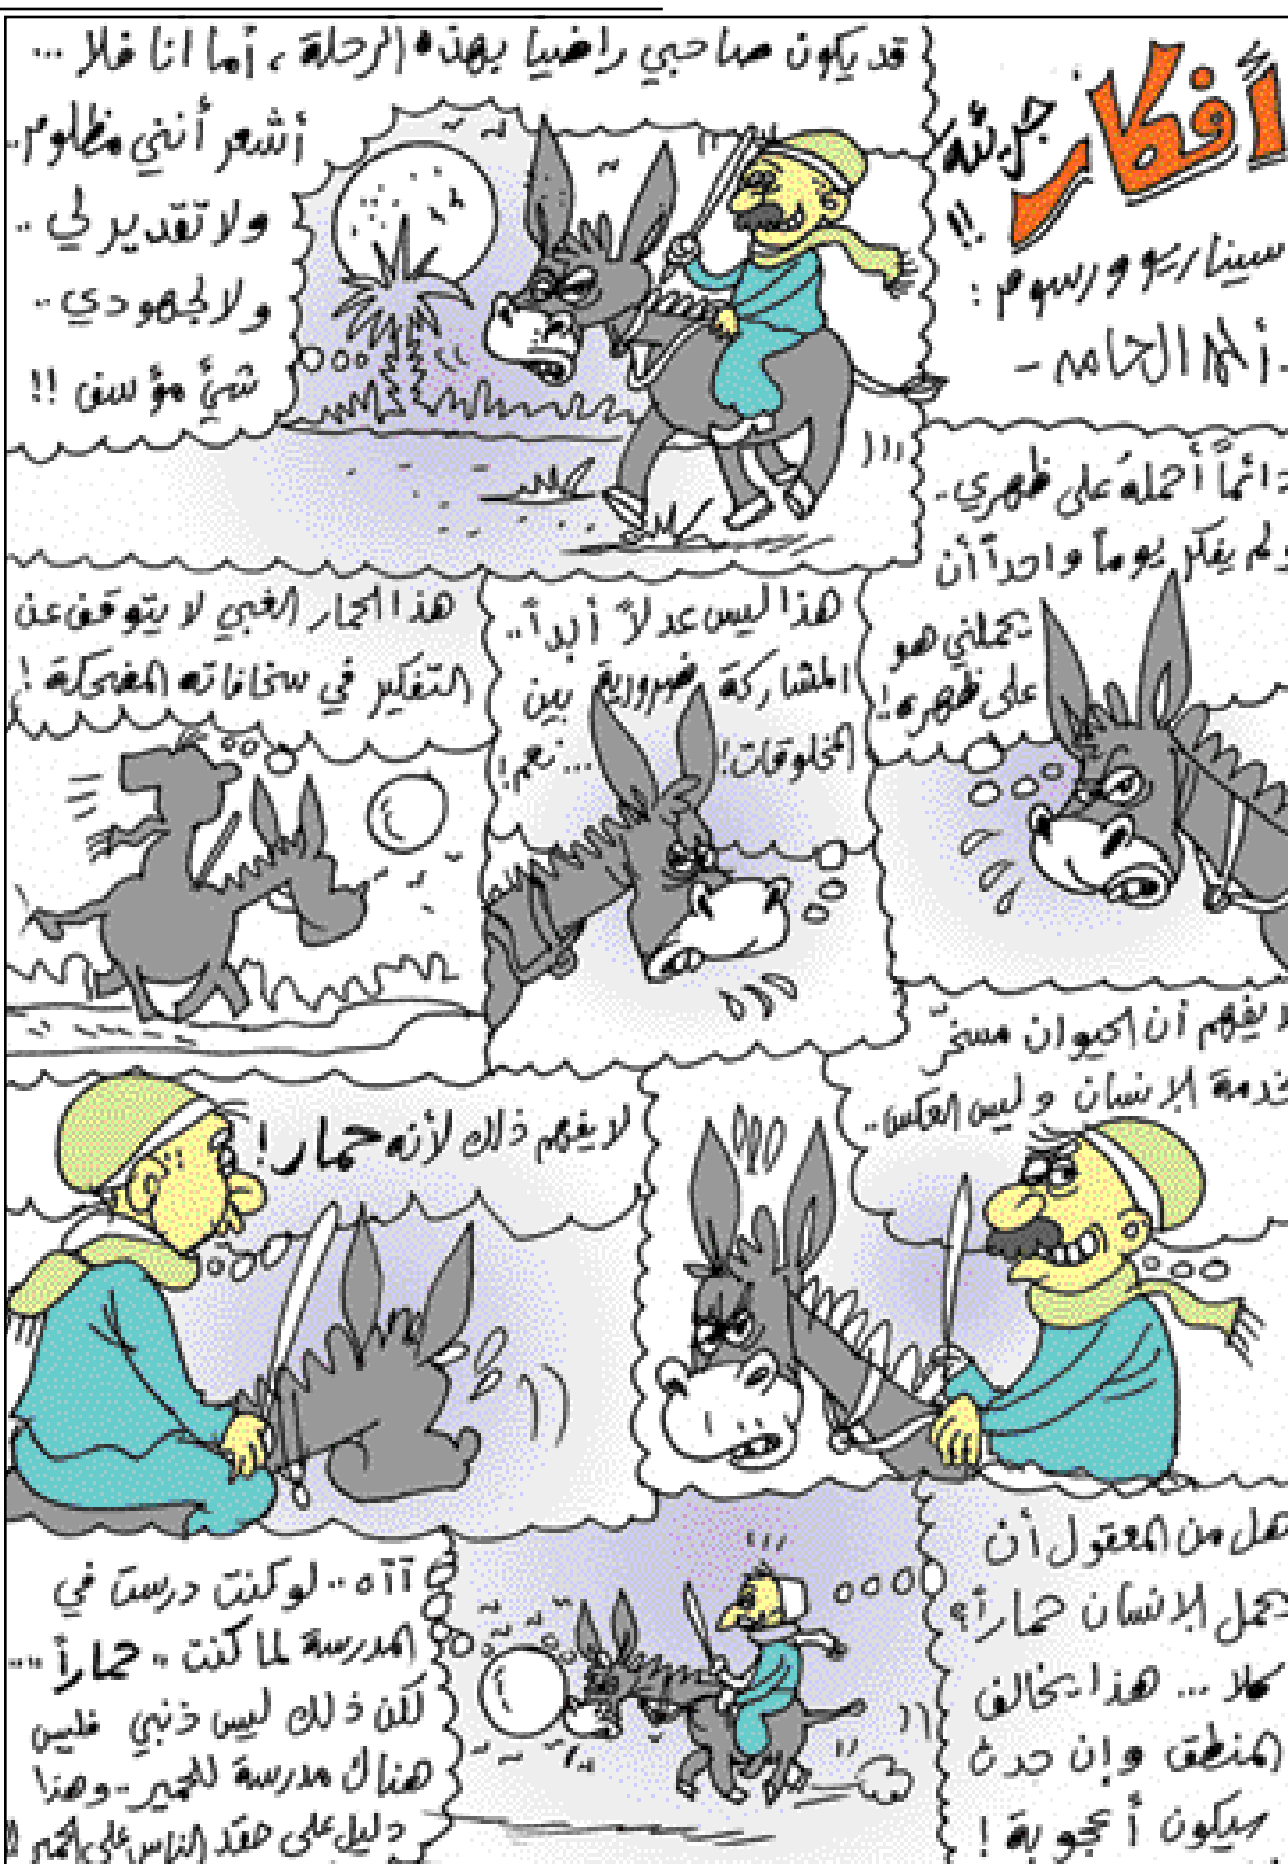 أفكار
!!
سيناريو ورسوم :
قد يكون صاحبي راضيا بهذه الرحلة ، أما انا فلا ...
أشعر أنني مظلوم ..
ولا تقدير لي ..
ولا لجهودي ..
شئ مؤسف !!
دائماً أحمله على ظهري ..
ولم يفكر يوماً واحداً أن
يحملني هو
على ظهره !
هذا ليس عدلاً أبداً ..
المشاركة ضرورية بين
المخلوقات ! ... نعم !
هذا الحمار الغبي لا يتوقف عن
التفكير في سخافاته المضحكة !
لا يفهم أن الحيوان مسخّر
لخدمة الإنسان وليس العكس ..
لا يفهم ذلك لأنه حمار !
هل من المعقول أن
يحمل الإنسان حماراً ؟
كلا ... هذا يخالف
المنطق وإن حدث
سيكون أعجوبة !
آآه .. لو كنت درست في
المدرسة لما كنت " حماراً " ..
لكن ذلك ليس ذنبي فليس
هناك مدرسة للحمير - وهذا
دليل على حقد الناس على الحمير !